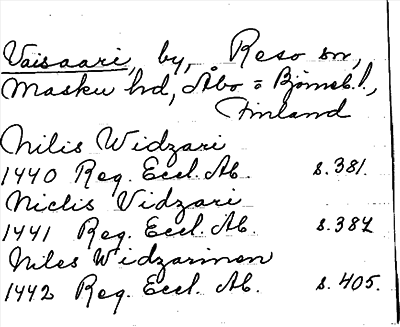 Vaisaari, by, Reso sn,
Masku hd, Åbo = Björneb. l.,
Finland
Nilis Widzari
1440 Reg. Eccl. Ab. s. 381.
Niclis Vidzari
1441 Reg. Eccl. Ab. s. 387
Niles Widzarimen
1442 Reg. Eccl. Ab. s. 405.